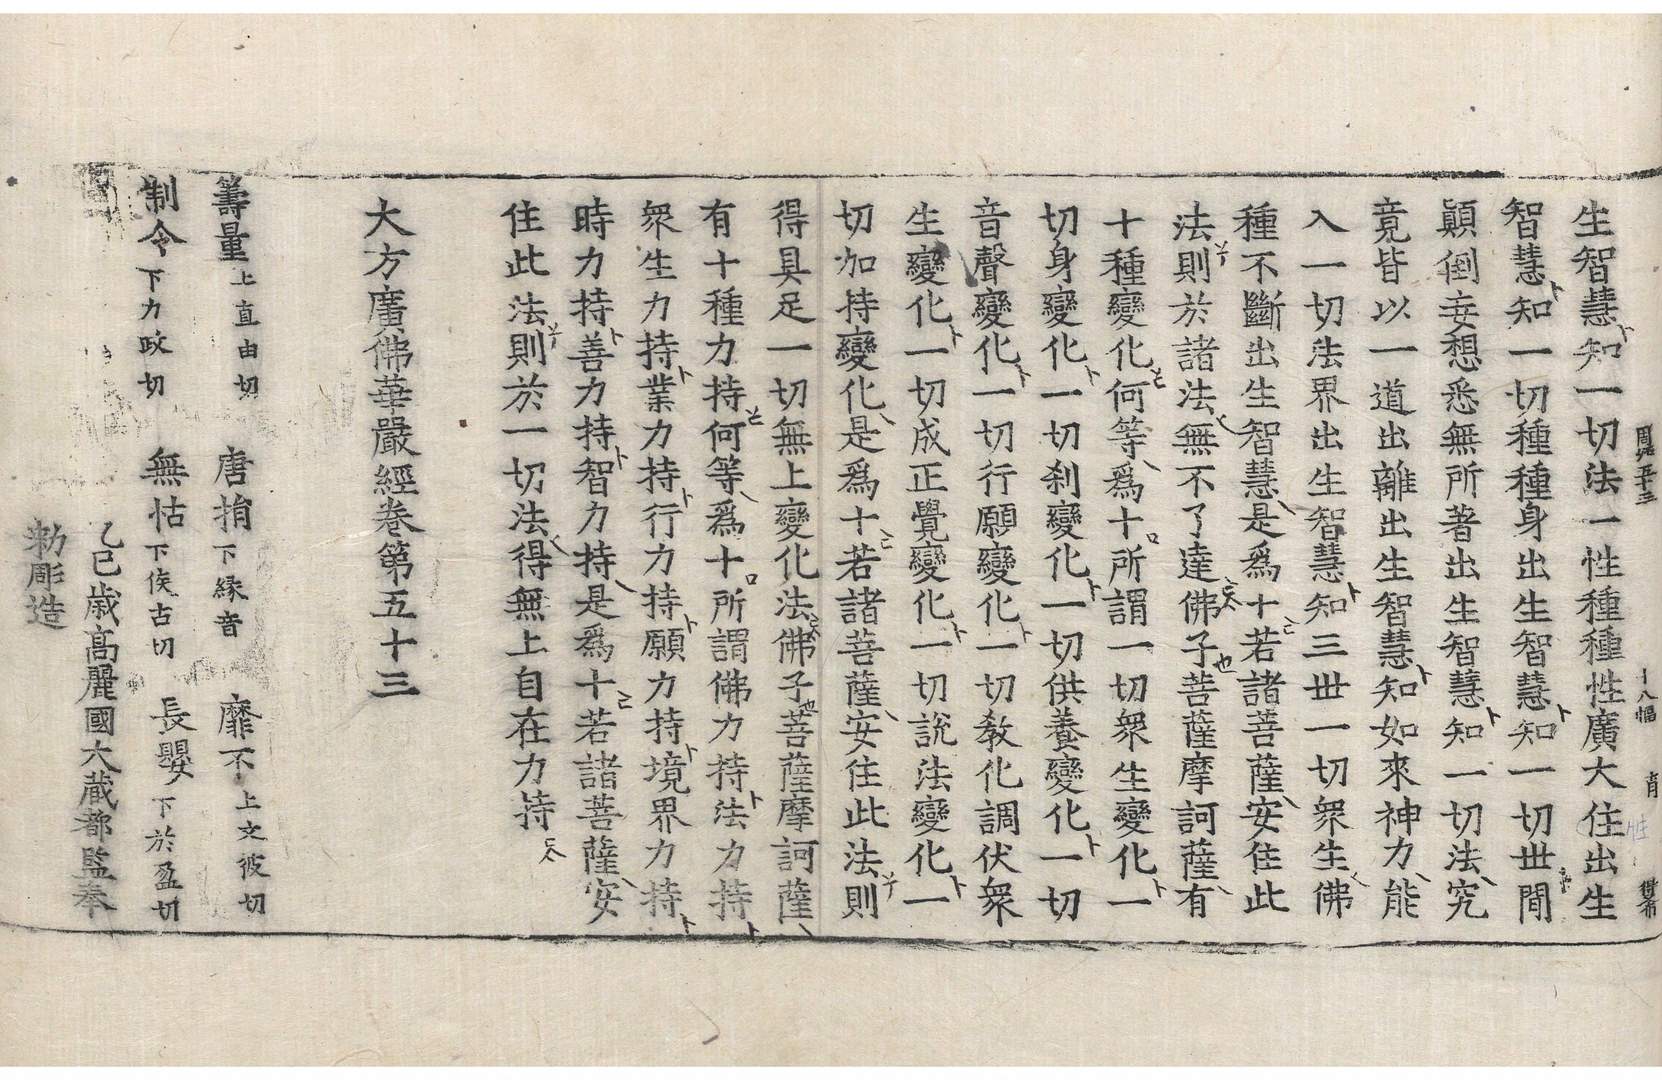 周經五十三 十八幅
生智慧知一切法一性種種性廣大住出生
智慧知一切種種身出生智慧知一切世間
顚倒妄想悉無所著出生智慧知一切法究
竟皆以一道出離出生智慧知如來神力能
入一切法界出生智慧知三世一切衆生佛
種不斷出生智慧是爲十若諸菩薩安住此
法則於諸法無不了達佛子菩薩摩訶薩有
十種變化何等爲十所謂一切衆生變化一
切身變化一切刹變化一切供養變化一切
音聲變化一切行願變化一切敎化調伏衆
生變化一切成正覺變化一切說法變化一
切加持變化是爲十若諸菩薩安住此法則
得具足一切無上變化法佛子菩薩摩訶薩
有十種力持何等爲十所謂佛力持法力持
衆生力持業力持行力持願力持境界力持
時力持善力持智力持是爲十若諸菩薩安
住此法則於一切法得無上自在力持
大方廣佛華嚴經卷第五十三
籌量上直由切 唐捐下緣音 靡不上文彼切
制令下力政切 無怙下侯古切 長嬰下於盈切
乙巳歲高麗國大藏都監奉
勑彫造